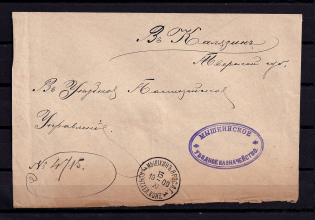 Въ Калязинъ
Тверской губ.
Въ Уѣздное Полицейское
Управленіе.
№ 4715.
МЫШКИНСКОЕ
УѢЗДНОЕ КАЗНАЧЕЙСТВО.